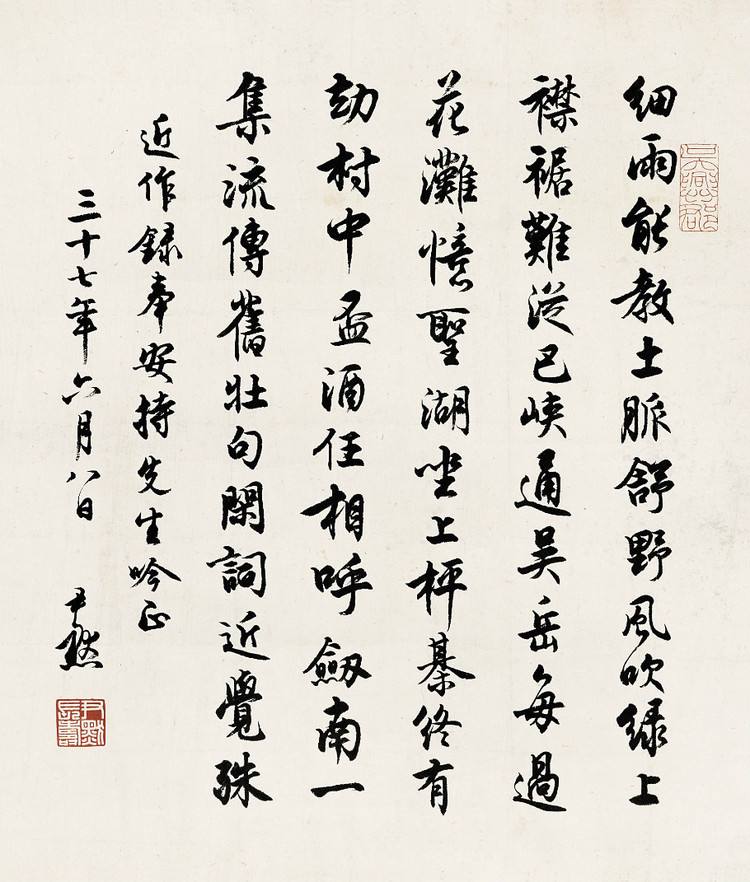 細雨能教土脈舒野風吹緑上
襟裾難從巴峽通吴岳每過
花灘憶聖湖坐上枰棊終有
劫村中盃酒任相呼劔南一
集流傳舊壮句閑詞近覺殊
近作録奉安持先生吟正
三十七年六月八日
尹默
尹默長壽